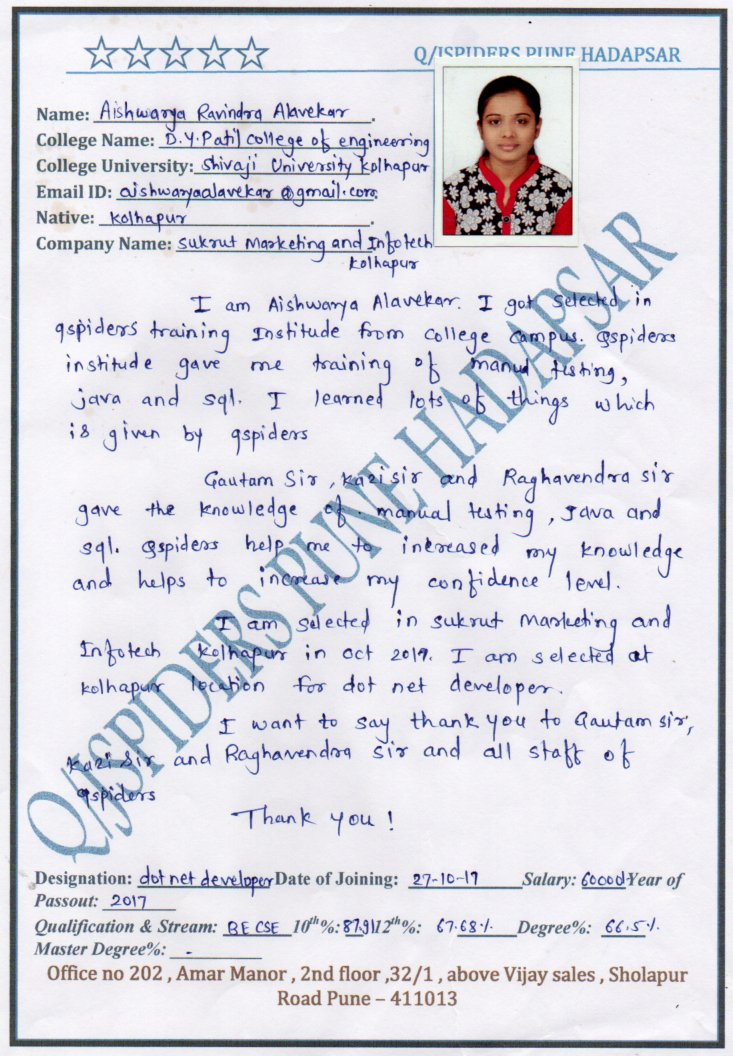 Q/JSPIDERS PUNE HADAPSAR
Name: Aishwarya Ravindra Alavekar.
College Name: D.Y.Patil college of engineering
College University: Shivaji University Kolhapur
Email ID: aishwaryaalavekar@gmail.com.
Native: Kolhapur.
Company Name: Sukrut Marketing and Infotech
Kolhapur
I am Aishwarya Alavekar. I got selected in
qspiders training Institude from college campus. Qspiders
institude gave me training of manual testing,
java and sql. I learned lots of things which
is given by qspiders
Gautam Sir, Kazi sir and Raghavendra sir
gave the knowledge of manual testing, Java and
sql. Qspiders help me to increased my knowledge
and helps to increase my confidence level.
I am selected in sukrut Marketing and
Infotech Kolhapur in oct 2017. I am selected at
kolhapur location for dot net developer.
I want to say thank you to Gautam sir,
Kazi Sir and Raghavendra sir and all staff of
qspiders
Thank you!
Q/JSPIDERS PUNE HADAPSAR
Designation: dot net developer Date of Joining: 27-10-17 Salary: 60000 Year of
Passout: 2017
Qualification & Stream: BE CSE 10th%: 87.91 12th%: 67.68% Degree%: 66.5%
Master Degree%: -
Office no 202 , Amar Manor , 2nd floor ,32/1 , above Vijay sales , Sholapur
Road Pune – 411013